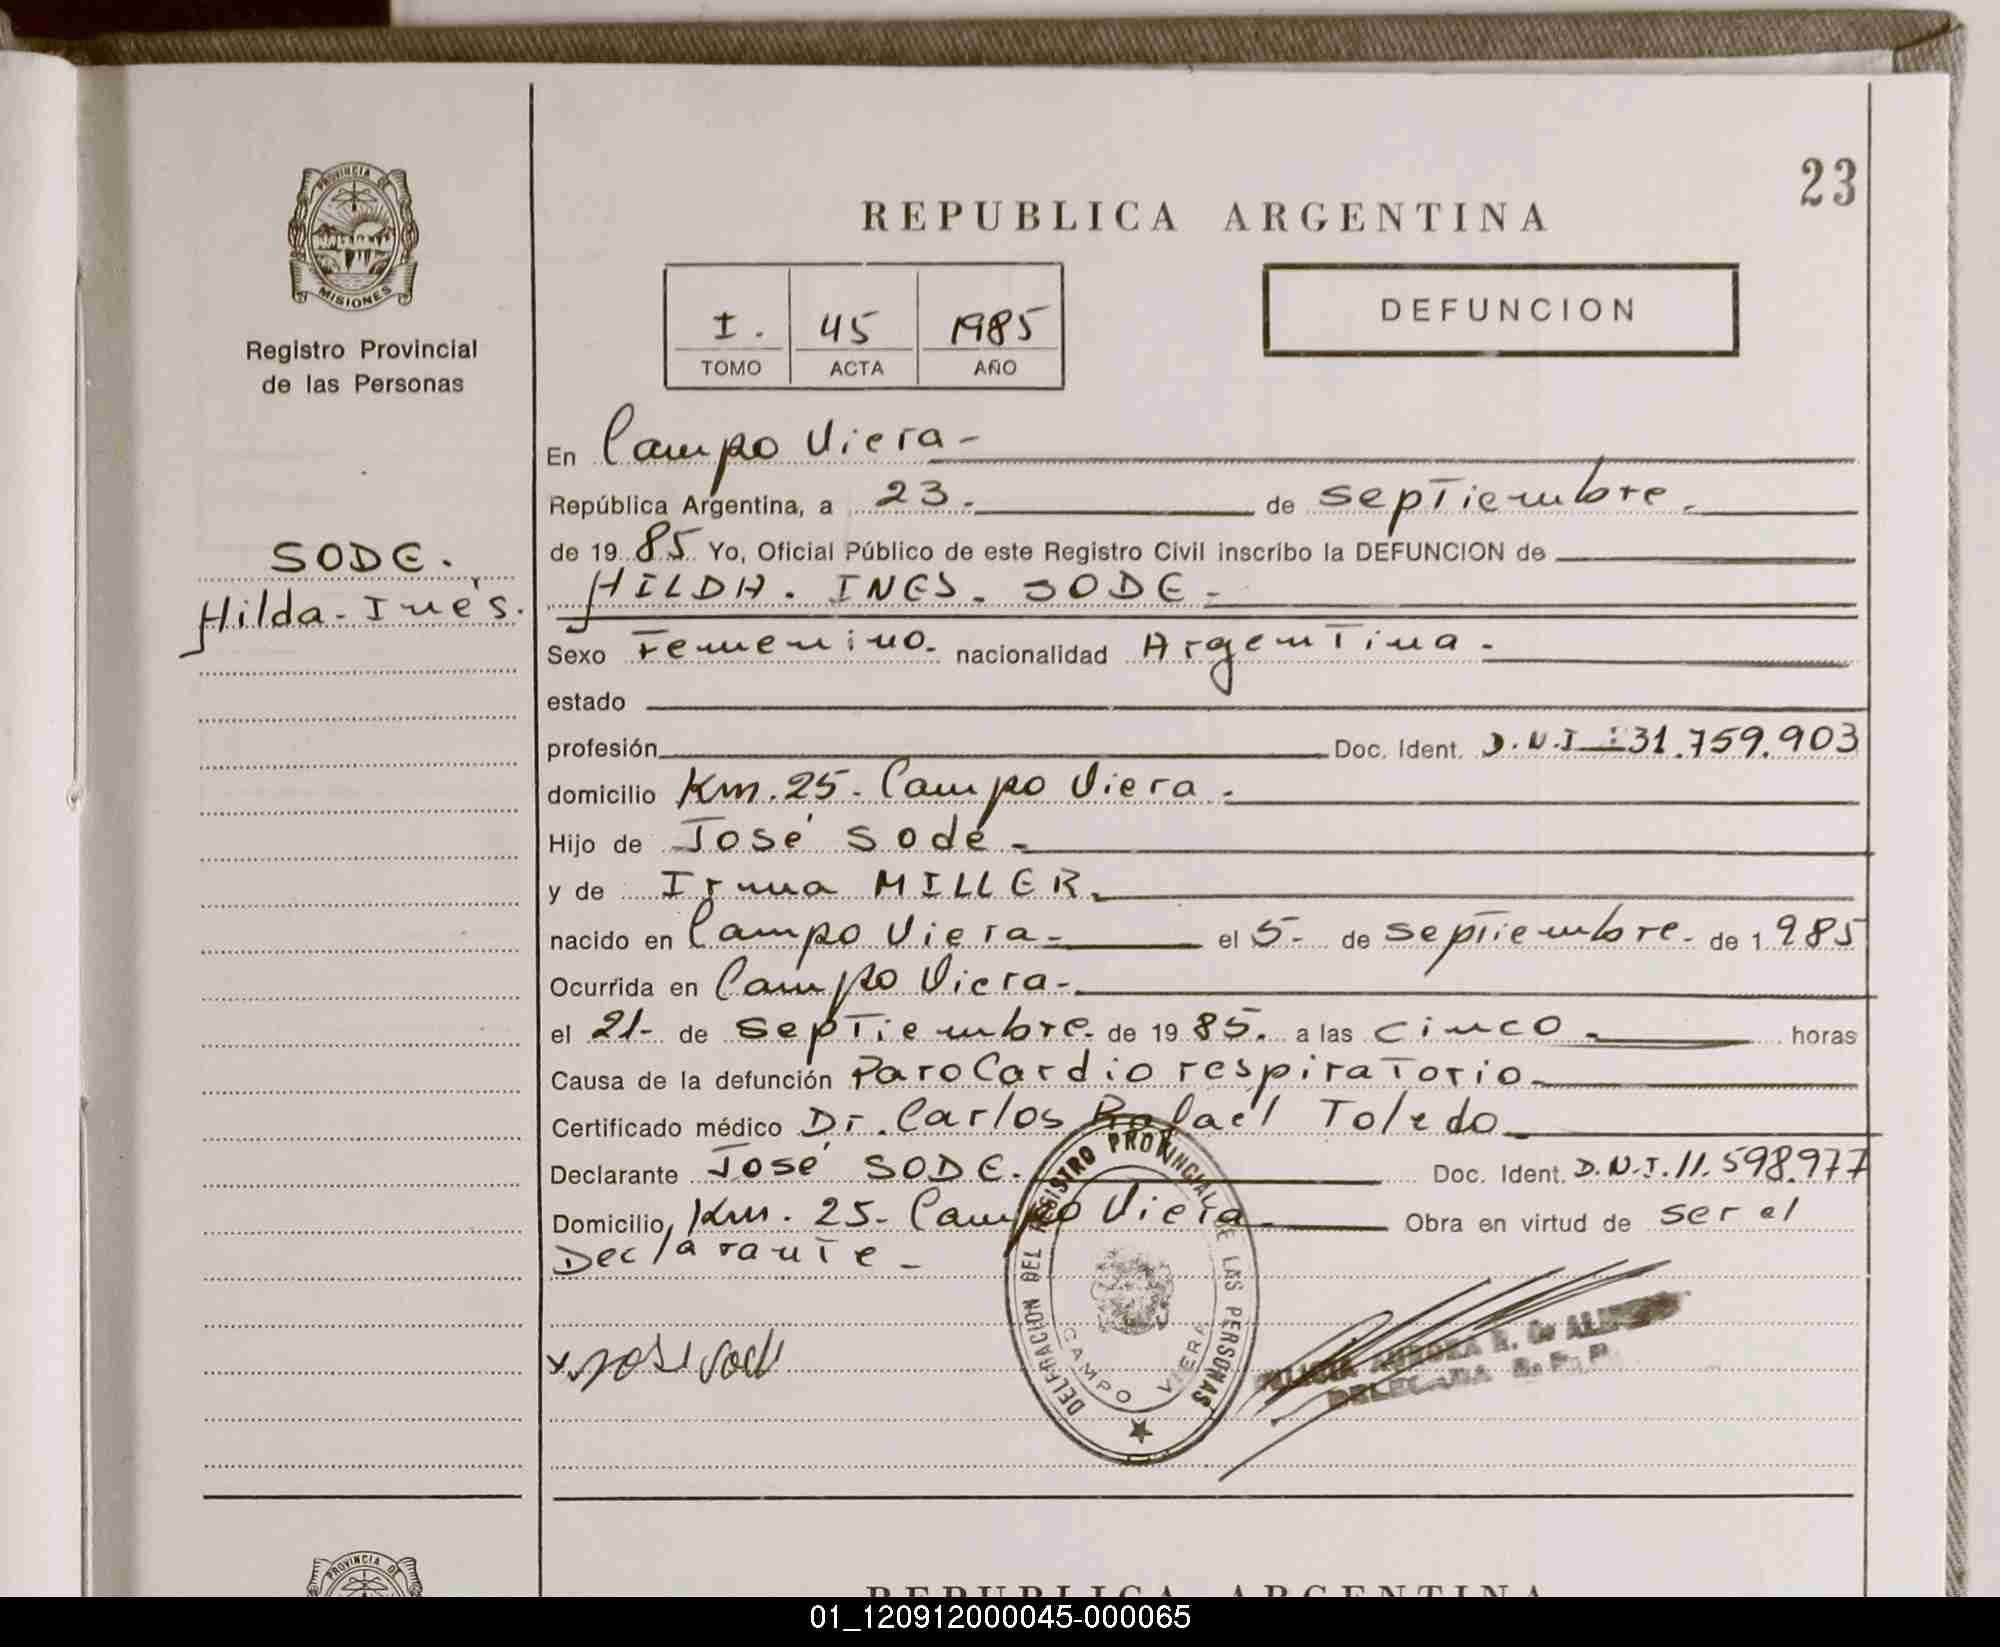 PROVINCIA DE
MISIONES
Registro Provincial
de las Personas
SODE.
Hilda - Inés.
23
REPUBLICA ARGENTINA
I. 45 1985
TOMO ACTA AÑO
DEFUNCION
En Campo Viera -
República Argentina, a 23. de septiembre.
de 19 85 Yo, Oficial Público de este Registro Civil inscribo la DEFUNCION de
HILDA. INES. SODE -
Sexo Femenino. nacionalidad Argentina -
estado
profesión Doc. Ident. D.N.I : 31.759.903
domicilio Km. 25 - Campo Viera -
Hijo de José Sode -
y de Irma MILLER.
nacido en Campo Viera - el 5 - de septiembre - de 1 985
Ocurrida en Campo Viera -
el 21 - de septiembre - de 19 85. a las cinco - horas
Causa de la defunción ParoCardio respiratorio -
Certificado médico Dr. Carlos Rafael Toledo
Declarante José SODE. Doc. Ident. D.N.I. 11.598.977
Domicilio Km. 25 - Campo Viera - Obra en virtud de ser el
Declarante -
x José Sode
DELEGACION DEL REGISTRO PROVINCIAL DE LAS PERSONAS
CAMPO VIERA
AURORA R. G.
DELEGADA R. P. P.
PROVINCIA DE
REPUBLICA ARGENTINA
01_120912000045-000065